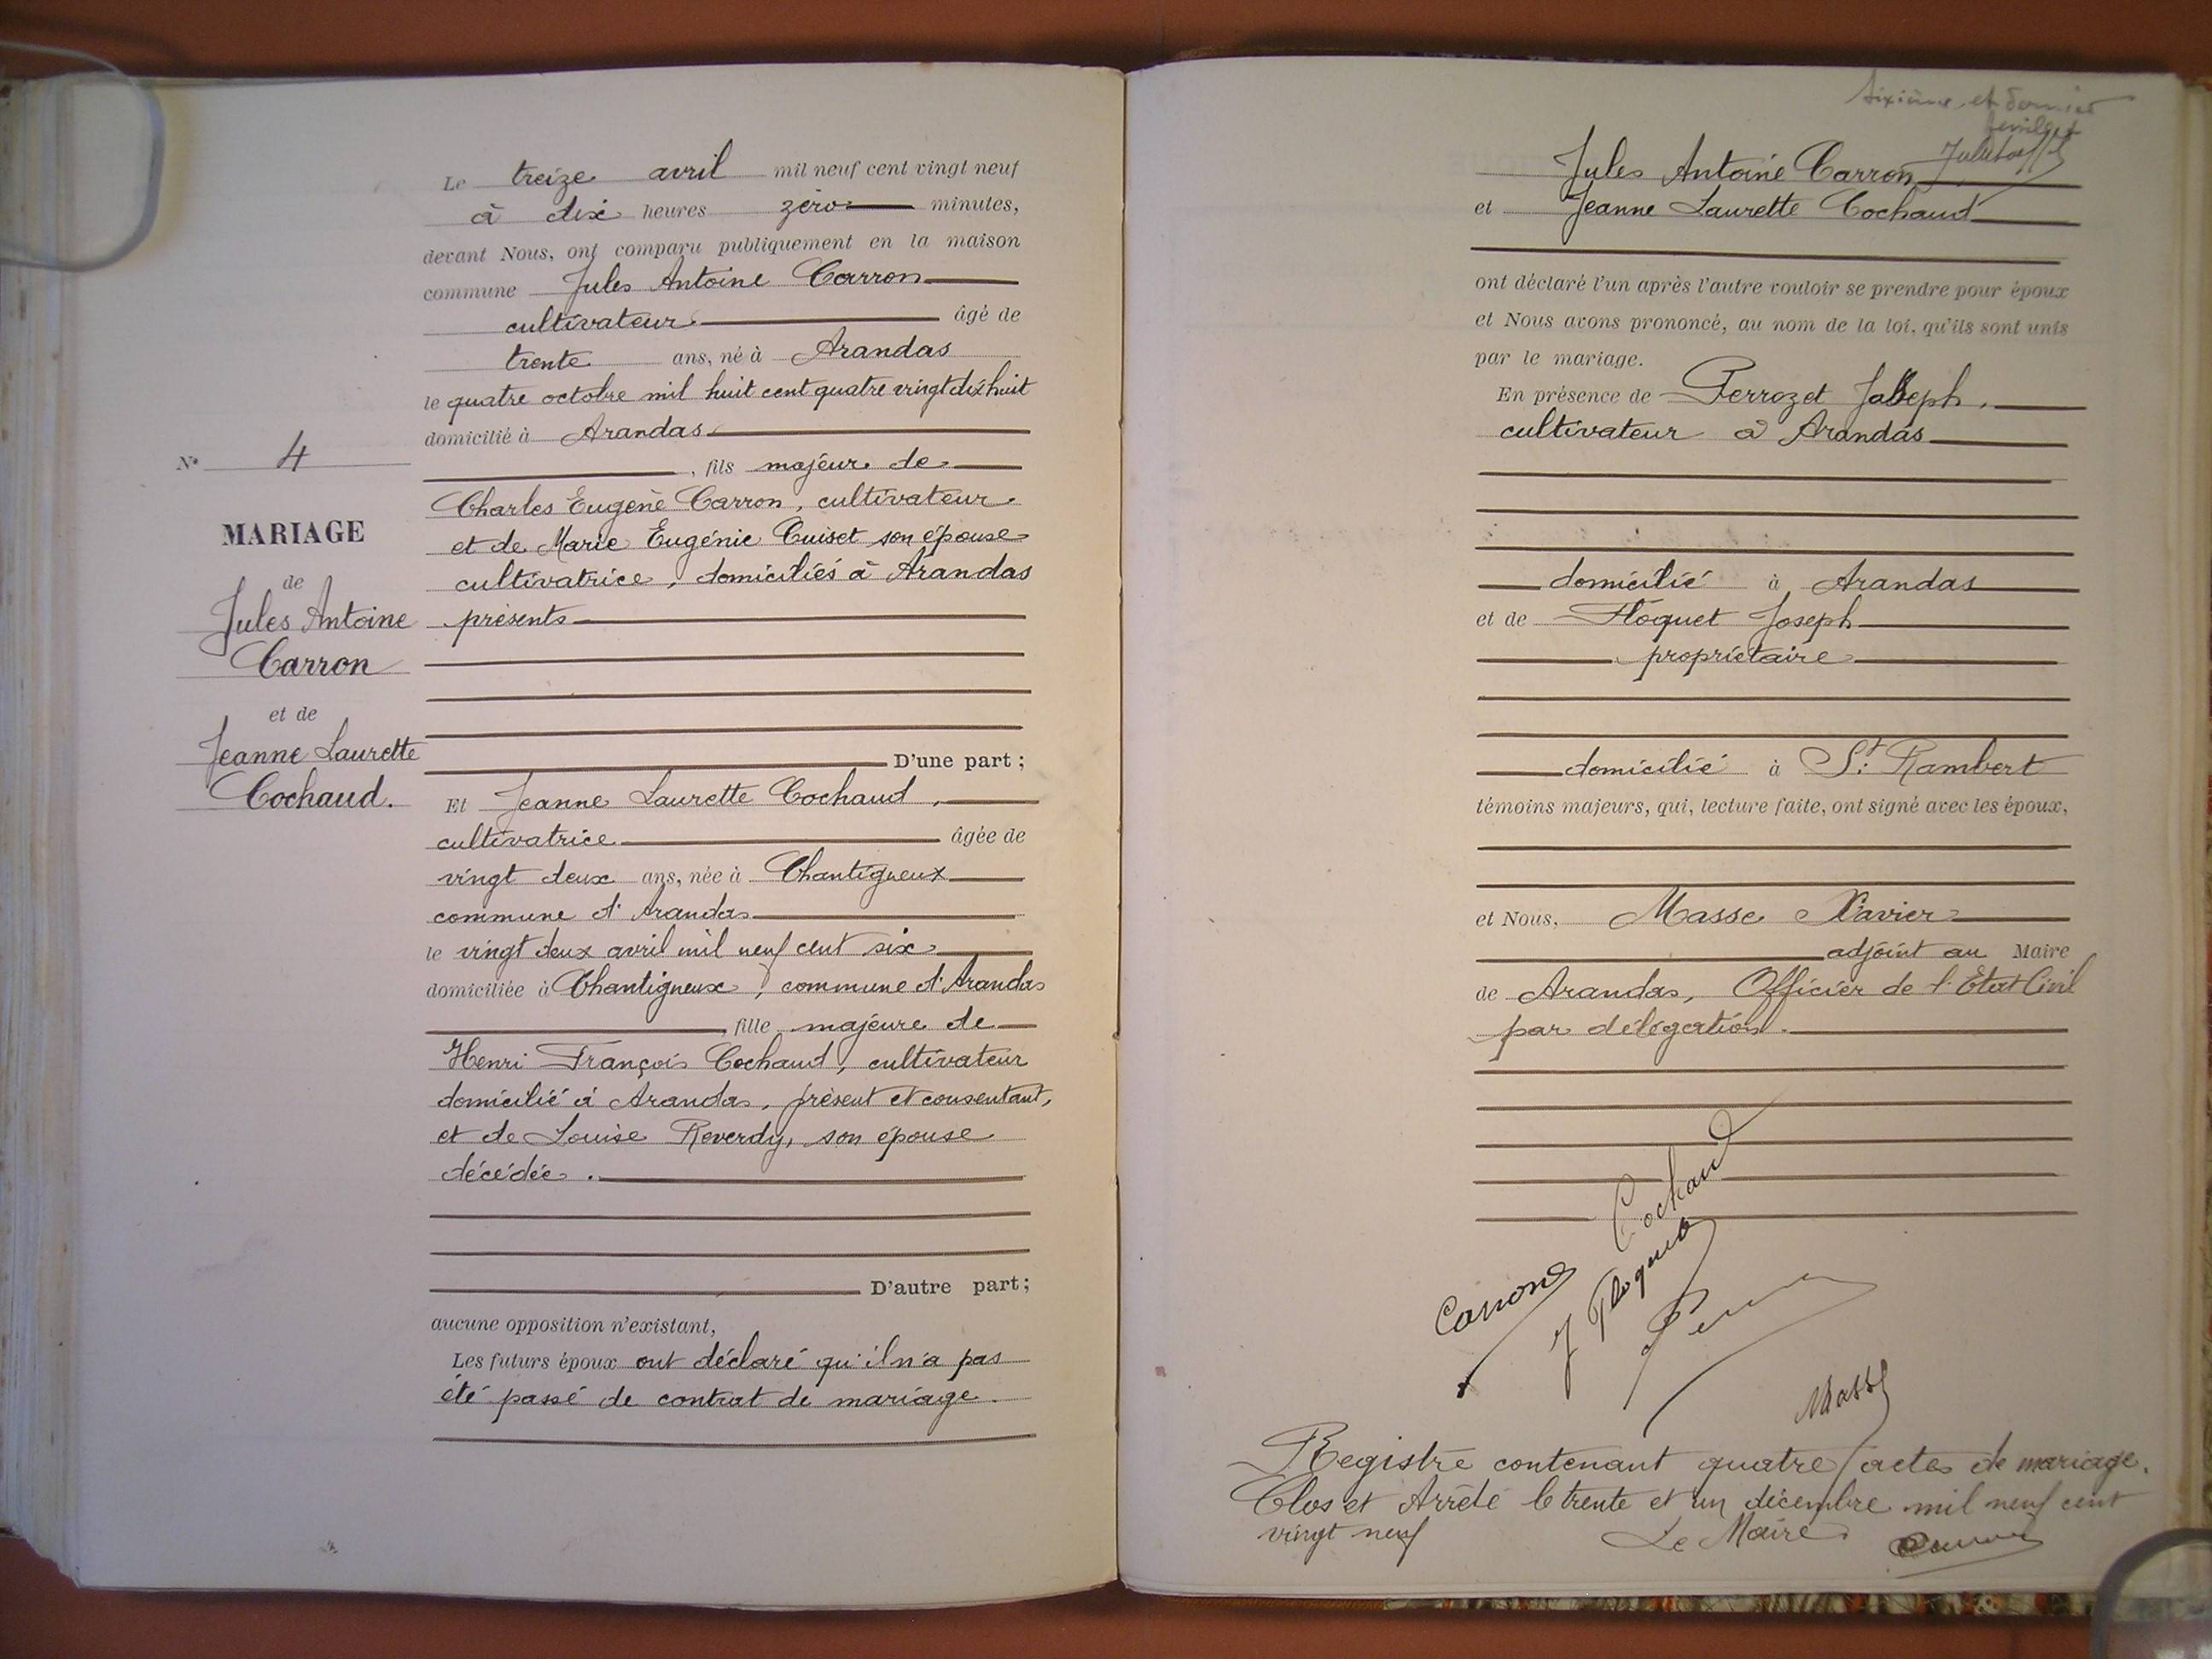 Le treize avril mil neuf cent vingt neuf
à dix heures zéro minutes,
devant Nous, ont comparu publiquement en la maison
commune Jules Antoine Carron
cultivateur âgé de
trente ans, né à Arandas
le quatre octobre mil huit cent quatre vingt dix huit
domicilié à Arandas
, fils majeur de
Charles Eugène Carron, cultivateur
et de Marie Eugénie Cuiset son épouse
cultivatrice, domiciliés à Arandas
présents
D'une part ;
Et Jeanne Laurette Cochaud,
cultivatrice âgée de
vingt deux ans, née à Chantigneux
commune d'Arandas
le vingt deux avril mil neuf cent six
domiciliée à Chantigneux, commune d'Arandas
, fille majeure de
Henri François Cochaud, cultivateur
domicilié à Arandas, présent et consentant,
et de Louise Reverdy, son épouse
décédée.
D'autre part ;
aucune opposition n'existant,
Les futurs époux ont déclaré qu'il n'a pas
été passé de contrat de mariage.
N° 4
MARIAGE
de
Jules Antoine
Carron
et de
Jeanne Laurette
Cochaud.
Sixième et dernier
feuillet
Jules Antoine Carron
et Jeanne Laurette Cochaud
ont déclaré l'un après l'autre vouloir se prendre pour époux
et Nous avons prononcé, au nom de la loi, qu'ils sont unis
par le mariage.
En présence de Perrozet Joseph,
cultivateur à Arandas
domicilié à Arandas
et de Floquet Joseph
propriétaire
domicilié à St Rambert
témoins majeurs, qui, lecture faite, ont signé avec les époux,
et Nous, Masse Xavier
adjoint au Maire
de Arandas, Officier de l'Etat Civil
par délégation.
Cochaud
Carron
J Floquet
Masse
Registre contenant quatre actes de mariage.
Clos et Arrêté le trente et un décembre mil neuf cent
vingt neuf Le Maire